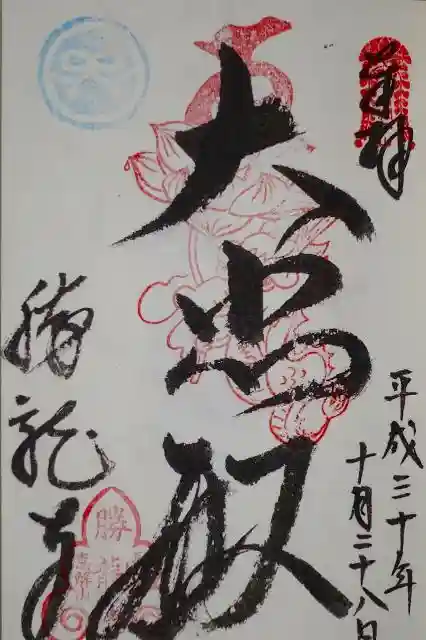 奉拝
平成三十年
十月二十八日
大悲殿
勝龍寺
勝龍